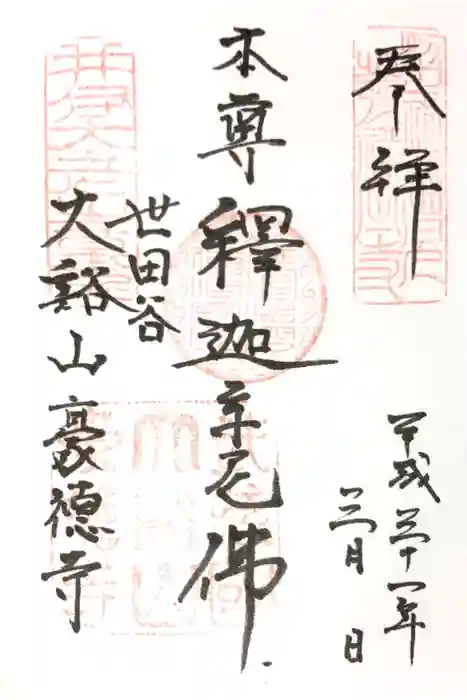 奉拝
平成三十一年
三月 日
本尊釋迦牟尼佛
世田谷
大谿山豪徳寺